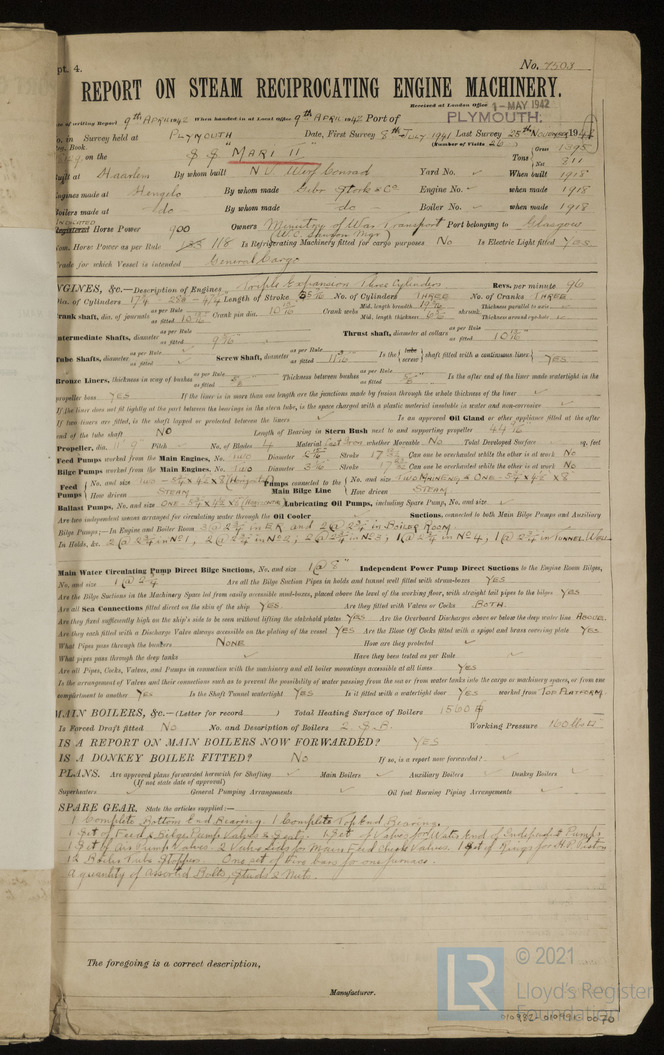 pt. 4.
No. 7503
REPORT ON STEAM RECIPROCATING ENGINE MACHINERY.
Received at London Office 1-MAY 1942
of writing Report 9th APRIL 1942 When handed in at Local Office 9th APRIL 1942 Port of PLYMOUTH.
No. in Survey held at PLYMOUTH Date, First Survey 8th JULY 1941 Last Survey 25th NOVEMBER 1941
Reg. Book. (Number of Visits 26)
on the S S "MARI II" Tons Gross 1395 Net 311
Built at Haarlem By whom built N.V. Werf Conrad Yard No. ✓ When built 1918
Engines made at Hengelo By whom made Gebr Stork & Co Engine No. ✓ when made 1918
Boilers made at do By whom made do Boiler No. ✓ when made 1918
INDICATED
Registered Horse Power 900 Owners Ministry of War Transport Port belonging to Glasgow
Nom. Horse Power as per Rule 118 Is Refrigerating Machinery fitted for cargo purposes No Is Electric Light fitted Yes
Trade for which Vessel is intended General Cargo
ENGINES, &c.—Description of Engines Triple Expansion Three Cylinders Revs. per minute 96
Dia. of Cylinders Length of Stroke No. of Cylinders THREE No. of Cranks THREE
Crank shaft, dia. of journals as per Rule as fitted Crank pin dia. Crank webs Mid. length breadth Mid. length thickness shrunk Thickness parallel to axis Thickness around eye-hole
Intermediate Shafts, diameter as per Rule as fitted Thrust shaft, diameter at collars as per Rule as fitted
Tube Shafts, diameter as per Rule as fitted Screw Shaft, diameter as per Rule as fitted Is the { tube screw } shaft fitted with a continuous liner { YES
Bronze Liners, thickness in way of bushes as per Rule as fitted Thickness between bushes as per Rule as fitted Is the after end of the liner made watertight in the
propeller boss YES If the liner is in more than one length are the junctions made by fusion through the whole thickness of the liner ✓
If the liner does not fit tightly at the part between the bearings in the stern tube, is the space charged with a plastic material insoluble in water and non-corrosive ✓
If two liners are fitted, is the shaft lapped or protected between the liners ✓ Is an approved Oil Gland or other appliance fitted at the after
end of the tube shaft NO Length of Bearing in Stern Bush next to and supporting propeller
Propeller, dia. Pitch No. of Blades 4 Material Cast Iron whether Moveable No Total Developed Surface sq. feet
Feed Pumps worked from the Main Engines, No. Two Diameter Stroke Can one be overhauled while the other is at work No
Bilge Pumps worked from the Main Engines, No. Two Diameter Stroke Can one be overhauled while the other is at work No
Feed Pumps { No. and size How driven STEAM Pumps connected to the Main Bilge Line { No. and size How driven STEAM
Ballast Pumps, No. and size Lubricating Oil Pumps, including Spare Pump, No. and size ✓
Are two independent means arranged for circulating water through the Oil Cooler ✓ Suctions, connected to both Main Bilge Pumps and Auxiliary
Bilge Pumps;—In Engine and Boiler Room 3 @ 2¾" in E.R. and 2 @ 2¾" in BOILER ROOM
In Holds, &c. 2 @ 2¾" in No 1, 2 @ 2¾" in No 2; 2 @ 2¾" in No 3; 1 @ 2¾" in No 4; 1 @ 2¾" in TUNNEL WELL
Main Water Circulating Pump Direct Bilge Suctions, No. and size 1 @ 8" Independent Power Pump Direct Suctions to the Engine Room Bilges,
No. and size Are all the Bilge Suction Pipes in holds and tunnel well fitted with strum-boxes YES
Are the Bilge Suctions in the Machinery Space led from easily accessible mud-boxes, placed above the level of the working floor, with straight tail pipes to the bilges YES
Are all Sea Connections fitted direct on the skin of the ship YES Are they fitted with Valves or Cocks BOTH.
Are they fixed sufficiently high on the ship's side to be seen without lifting the stokehold plates YES Are the Overboard Discharges above or below the deep water line ABOVE.
Are they each fitted with a Discharge Valve always accessible on the plating of the vessel YES Are the Blow Off Cocks fitted with a spigot and brass covering plate YES
What Pipes pass through the bunkers NONE How are they protected ✓
What pipes pass through the deep tanks ✓ Have they been tested as per Rule ✓
Are all Pipes, Cocks, Valves, and Pumps in connection with the machinery and all boiler mountings accessible at all times YES
Is the arrangement of Valves and their connections such as to prevent the possibility of water passing from the sea or from water tanks into the cargo or machinery spaces, or from one
compartment to another YES Is the Shaft Tunnel watertight YES Is it fitted with a watertight door YES worked from TOP PLATFORM.
MAIN BOILERS, &c.—(Letter for record ) Total Heating Surface of Boilers 1560
Is Forced Draft fitted No No. and Description of Boilers 2 S.B. Working Pressure 160 lb
IS A REPORT ON MAIN BOILERS NOW FORWARDED? YES
IS A DONKEY BOILER FITTED? No If so, is a report now forwarded? ✓
PLANS. Are approved plans forwarded herewith for Shafting ✓ Main Boilers ✓ Auxiliary Boilers ✓ Donkey Boilers ✓
(If not state date of approval)
Superheaters ✓ General Pumping Arrangements ✓ Oil fuel Burning Piping Arrangements ✓
SPARE GEAR. State the articles supplied:—
1 Complete Bottom End Bearing. 1 Complete Top End Bearing.
1 Set of Feed & Bilge Pump Valves & Seats. 1 Set of Valves for Water End of Independent Pumps
1 Set of Air Pump Valves. 2 Valve Lids for Main Feed Check Valves. 1 Set of Rings for H.P. Piston
12 Boiler Tube Stoppers. One set of Fire bars for one furnace.
A quantity of assorted Bolts, Studs & Nuts.
The foregoing is a correct description,
Manufacturer.
LR
© 2021
Lloyd's Register
Foundation
010982-010991-0070